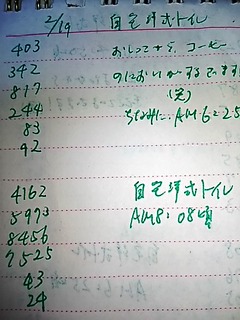 2/19 自宅洋式トイレ
403 おしっこすると、コーヒー
342 のにおいがするでます
817 (笑)
244 ちなみに、AM6:25
83
92
4162 自宅洋式トイレ
5973 AM8:08頃
8456
7525
43
24